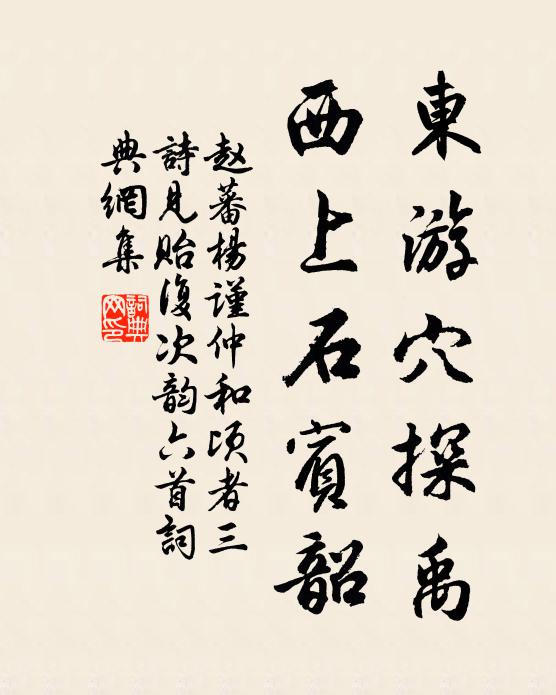 東游穴探禹
西上石賓韶
赵蕃楊謹仲和頃者三
詩見貽復次韵六首詞
典網集
詞典网印